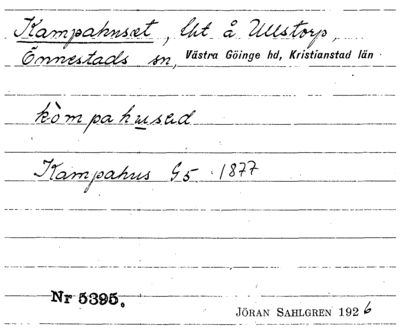 Kampahuset, lht å Ullstorp,
Önnestads sn, Västra Göinge hd, Kristianstad län.
kòmpahused
Kampahus G5 1877
Nr 5395.
JÖRAN SAHLGREN 1926